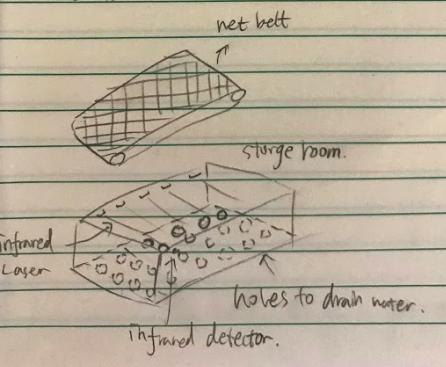 net belt
sturge room.
infrared
Laser
holes to drain water.
infrared detector.